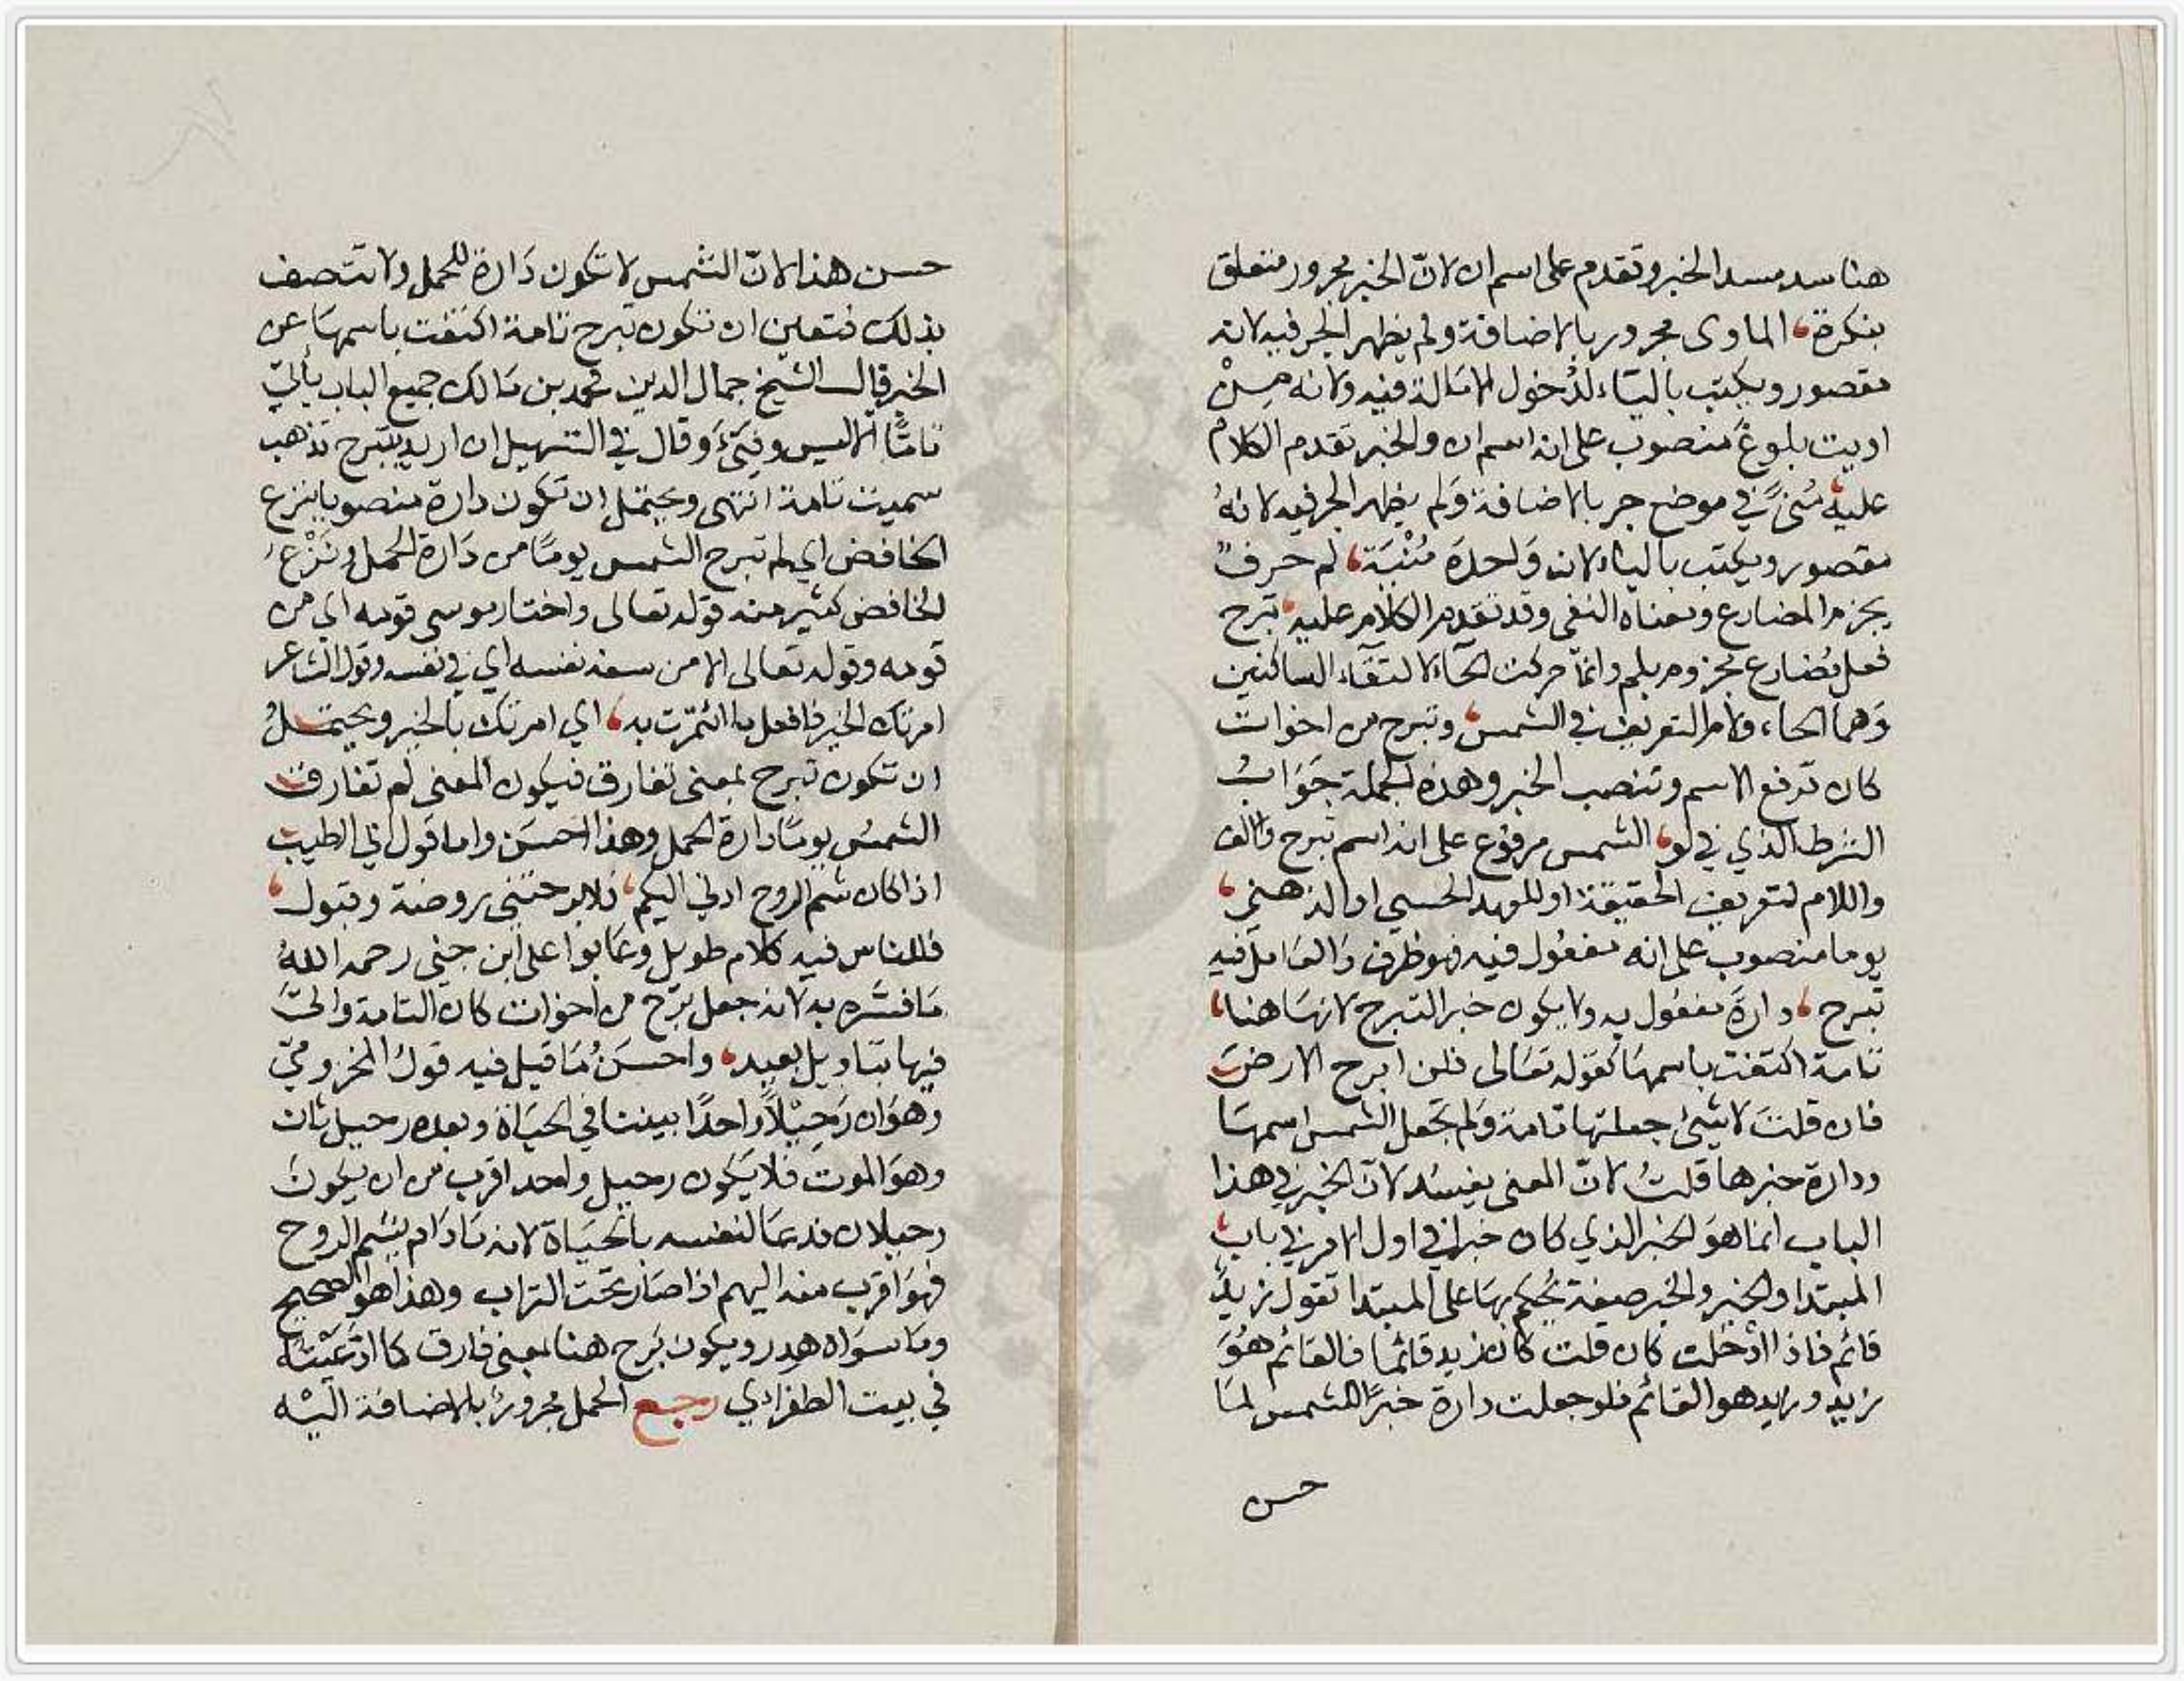 هنا سد مسد الخبر وتقدم على اسم ان لانّ الخبر مجرور متعلق
بنكرة، الماوى مجرور بالاضافة ولم يظهر الجر فيه لانه
مقصور ويكتب بالياء لدُخول الامَالة فيه ولانه مِنْ
اويت بلوغَ منصوب على انه اسم ان والخبر تقدم الكلام
عليه، مُنىً في موضع جر بالاضافة وَلم يظهر الجر فيه لانهُ
مقصور ويكتب بالياء لان وَاحدَة مُنْيَة، لم حرفٌ
يجزم المضارع ومعناه النفى وقد تقدم الكلام عليه، تبرح
فعل مُضارع مجزوم بلم وانمّا حركت الحآء لالتقآء الساكنين
وَهما الحاء ولام التعريف في الشمس، وتبرح من اخوات
كان ترفع الاسم وتنصب الخبر وهذه الجملة جَوَابُ
الشرط الذي في لو، الشمس مرفوع على انه اسم تبرح والالف
واللام لتعريف الحقيقة او للعهد الحسي او الذهني،
يوما منصوب على انه مفعُول فيه فهو ظرف وَالعَامل فيه
تبرح، دارةَ مفعُول به ولا يكون خبرا لتبرح لانهَا هنا،
تامة اكتفت باسمهَا كقوله تعَالى فلن ابرح الارضَ
فان قلتَ لاي شئ جعلتها تامة وَلم تجعل الشمس اسمهَا
ودارة خبرها قلتُ لانّ المعنى يفسُد لانّ الخبر في هذا
الباب انما هوَ الخبر الذي كان خبرا في اول الامر في باب،
المبتدا والخبر والخبر صفة يُحكم بهَا على المبتدا تقول زيدٌ
قائم فاذا ادْخلت كان قلت كان زيد قائما فالقائم هُوَ
زيد وزيد هو القائم فلو جعلت دارة خبرًا للشمس لمَا
حسن
حسن هذا لانّ الشمس لا تكون دَارة للحمل ولا تتصف
بذلك فتعين ان تكون تبرح تامة اكتفت باسمهَا عن
الخبر قال الشيخ جمال الدين محمد بن مَالك جميع الباب يأتي
تامًّا الا ليس وفتئَ وقال في التسهيل ان اريد بتبرح تذهب
سميت تامة انتهى ويحتمل ان تكون دارة منصوبا بنزع
الخافض اي لم تبرح الشمس يومًا من دَارة الحمل ونَزْعُ
الخافض كثير منه قوله تعالى واختار موسى قومه اي من
قومه وقوله تعالى الا من سفه نفسه اي في نفسه وقول الشاعر
امرتك الخير فافعل ما ائتمرت به، اي امرتك بالخير ويحتملُ
ان تكون تبرح بمعنى تفارق فيكون المعنى لم تفارق
الشمسُ يومًا دارة الحمل وهذا احسَن واما قول ابي الطيب
اذا كان شم الروح ادنى اليكم، فلا برحتني روضة وقبول،
فللناس فيه كلام طويل وعَابوا على ابن جني رحمه اللهُ
مَا فسَّره به لانه جعل برَح من اخوات كان التامة والحّ
فيها بتاويل بعيد، واحسَنُ مَا قيل فيه قولُ المخزوميّ
وهوَ ان رَحِيْلاً وَاحدًا بيننا في الحيَاة وبعده رحيل ثان
وهوَ الموت فلا يَكون رحيل واحد اقرب من ان يكونَ
رحيلان فدعَا لنفسه بالحيَاة لانه مَا دَام يشم الروح
فهوَ اقرب منه اليهم اذا صَار تحت التراب وهذا هو الصحيح
ومَا سوَاه هدر ويكون بَرح هنا بمعنى فارق كما ادّعَيْتهُ
في بيت الطغرادي رجع الحمل مجرورٌ بالاضافة اليْه